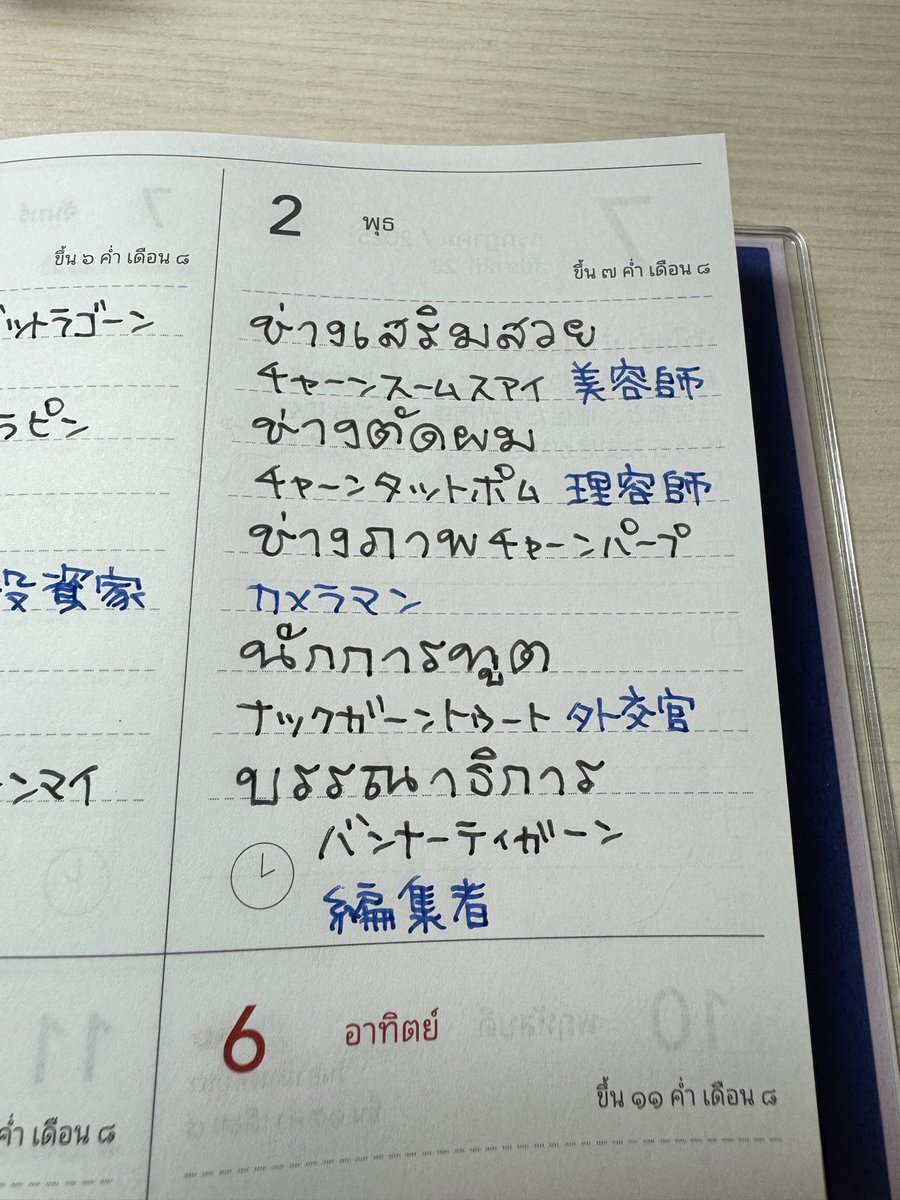 2 พุธ
ขึ้น ๖ ค่ำ เดือน ๘
ขึ้น ๗ ค่ำ เดือน ๘
ットラゴーン
ช่างเสริมสวย
チャーンスームスアイ 美容師
ラピン
ช่างตัดผม
チャーンタットポム 理容師
ช่างภาพ チャーンパープ
投資家
カメラマン
นักการทูต
ナックガーントゥート 外交官
ーンマイ
บรรณาธิการ
バンナーティガーン
編集者
6 อาทิตย์
ค่ำ เดือน ๘
ขึ้น ๑๑ ค่ำ เดือน ๘